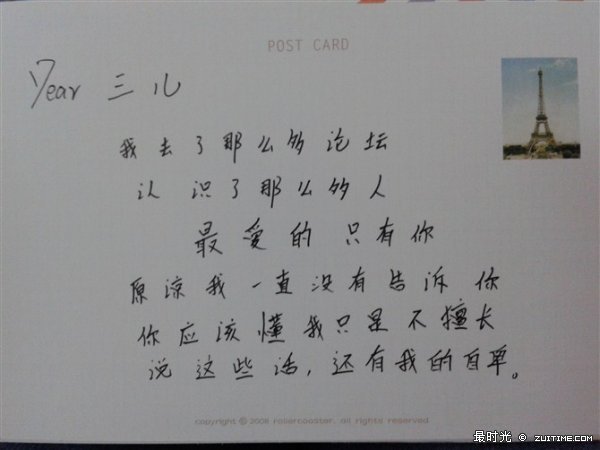 POST CARD
Year 三儿
我去了那么多论坛
认识了那么多人
最爱的只有你
原谅我一直没有告诉你
你应该懂我只是不擅长
说这些话，还有我的自卑。
copyright © 2008 rollercoaster. all rights reserved.
最时光 © ZUITIME.COM